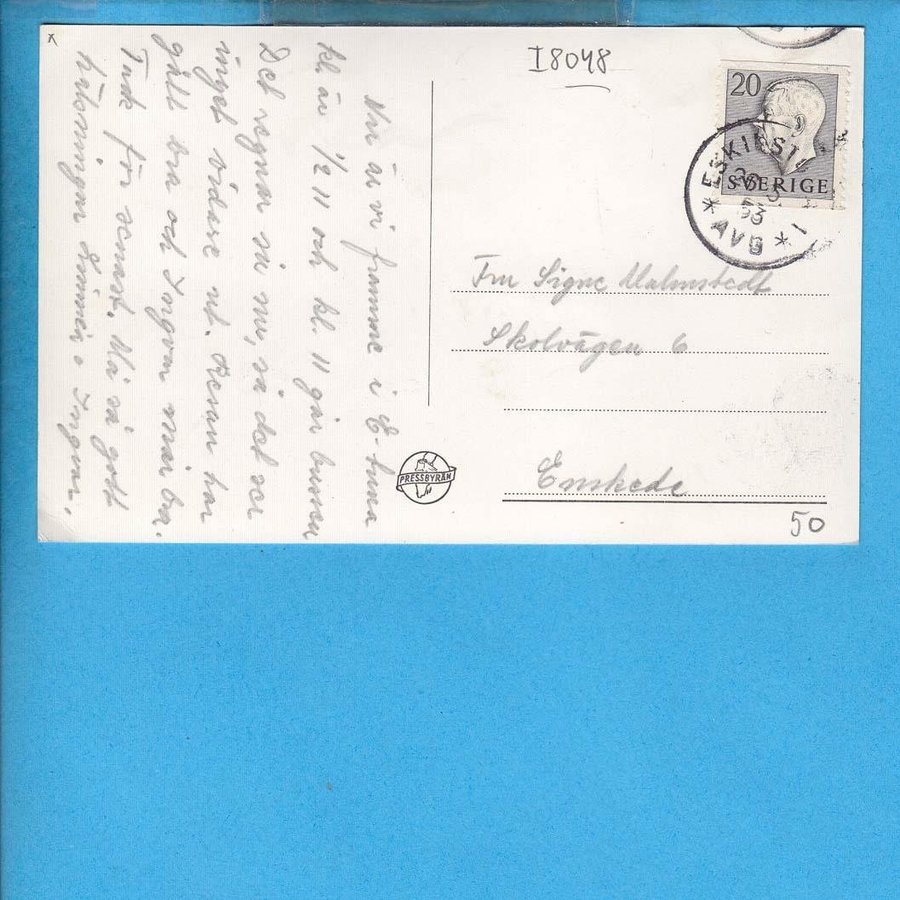 I8048
20
SVERIGE
* ESKILSTUNA 1 *
53
AVG
Nu är vi framme i E-tuna
kl är 1/2 11 och kl. 11 går bussen
Det regnar så nu, så det ser
inget vidare ut. Resan har
gått bra och Ingvar mår bra.
Tack för senast. Må så gott
hälsningar o Ingvar.
Fru Signe Malmstedt
Skolvägen 6
Enskede
PRESSBYRÅN
50